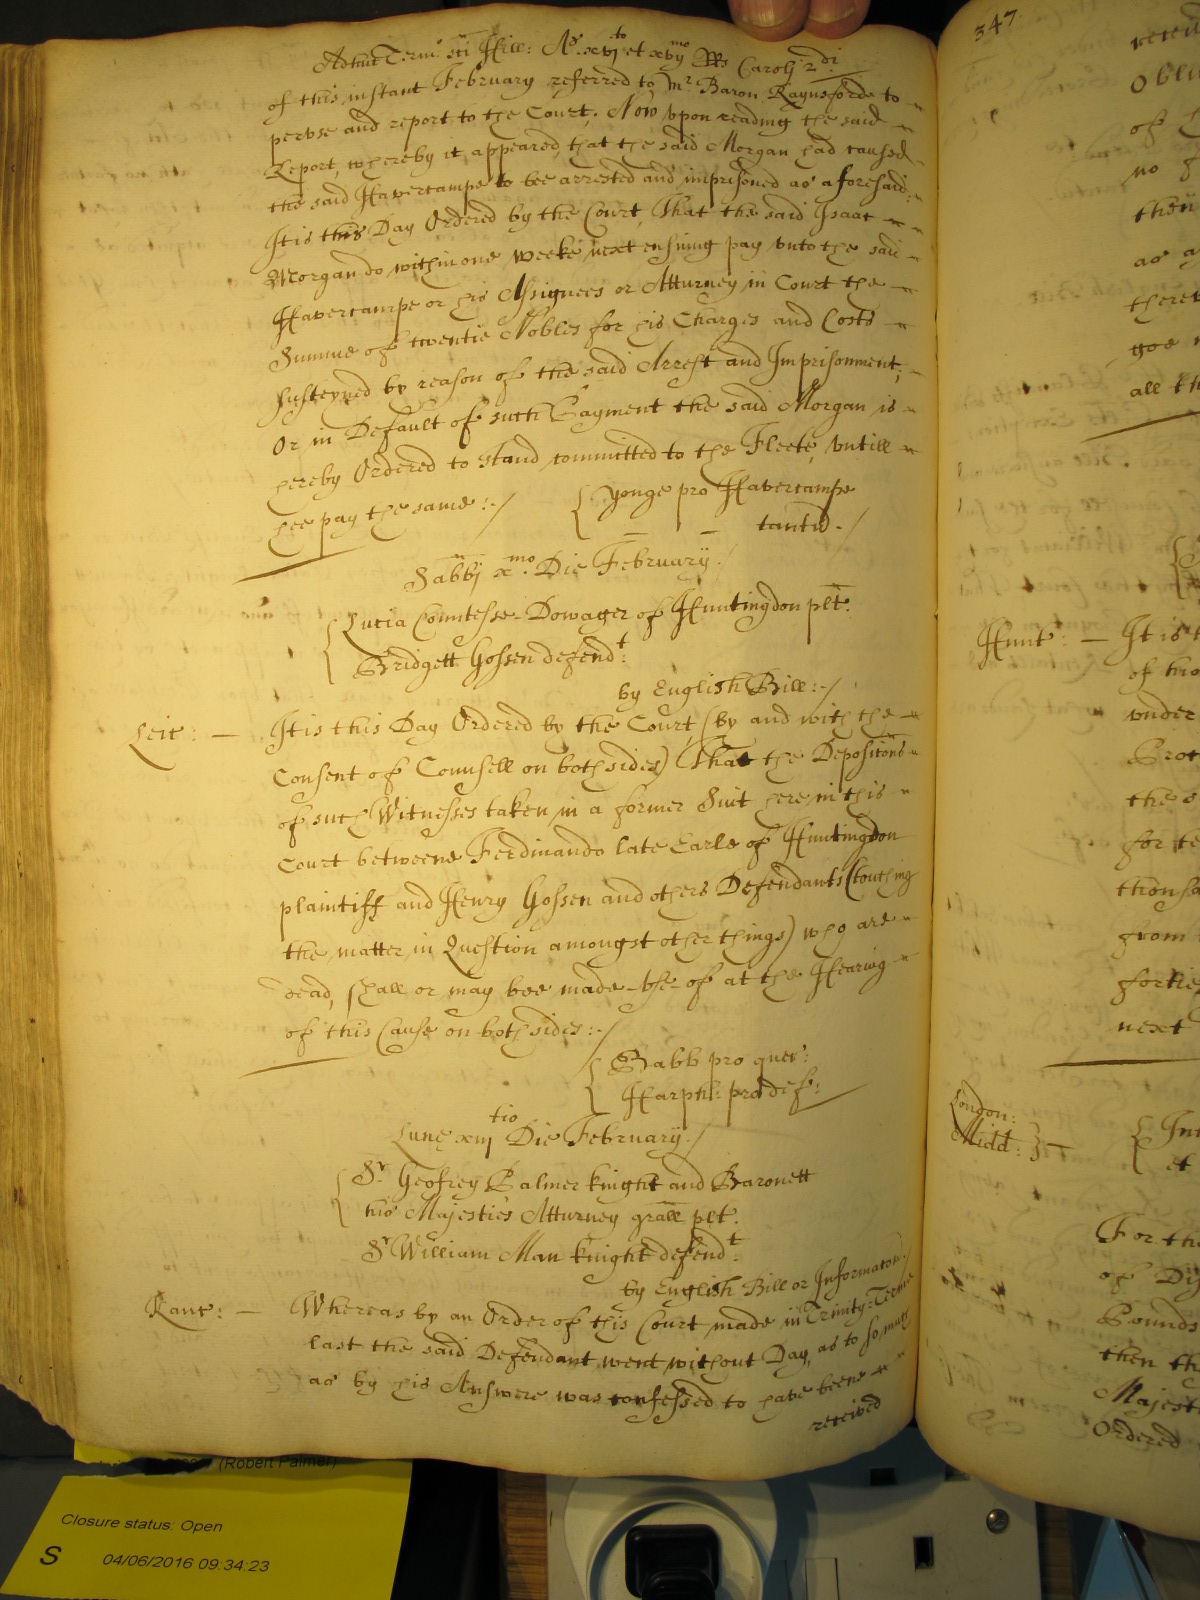 Adhuc Term: sci Hill: Ao. xvjto et xvijmo Rs Caroli 2di
of this instant February referred to Mr Baron Raynsforde to
peruse and report to the Court. Now vpon reading the said
Report, whereby it appeared, that the said Morgan had caused
the said Havercampe to bee arrested and imprisoned as aforesaid:
It is this Day Ordered by the Court, That the said Isaac
Morgan do within one weeke next ensuing pay vnto the said
Havercampe or his Assignees or Atturney in Court the
Summe of twentie Nobles for his Charges and Costs
susteyned by reason of the said Arrest and Imprisonment;
Or in Default of such Payment the said Morgan is
hereby Ordered to stand committed to the Fleete, vntill
hee pay the same:
Yonge pro Havercampe
tantu.
Sabbi xmo. Die February.
Lucia Countesse Dowager of Huntingdon plt.
Bridgett Gossen defendt:
by English Bill:
Leic: — It is this Day Ordered by the Court, (by and with the
Consent of Counsell on both sides) That the Depositons
of such Witnesses taken in a former Suit here in this
Court betweene Ferdinando late Earle of Huntingdon
plaintiff and Henry Gossen and others Defendants (touching
the matter in Question amongst other things) who are
dead, shall or may bee made vse of at the Hearing
of this Cause on both sides:
Babb pro quer:
Harph: pro def:
Lune xiijtio Die February.
Sr. Geofrey Palmer knight and Baronett
his Majesties Atturney grall plt.
Sr William Man knight defendt:
by English Bill or Informaton
Kanc: — Whereas by an Order of this Court made in Trinity Terme
last the said Defendant went without Day, as to so much
as by his Answere was confessed to have beene
received
347
Hunt: — It is
of
vnder
the
for
from
next
London:
Midd:
et
For the
of
Pounds
then
Majest
Ordered
(Robert Palmer)
Closure status: Open
S 04/06/2016 09:34:23